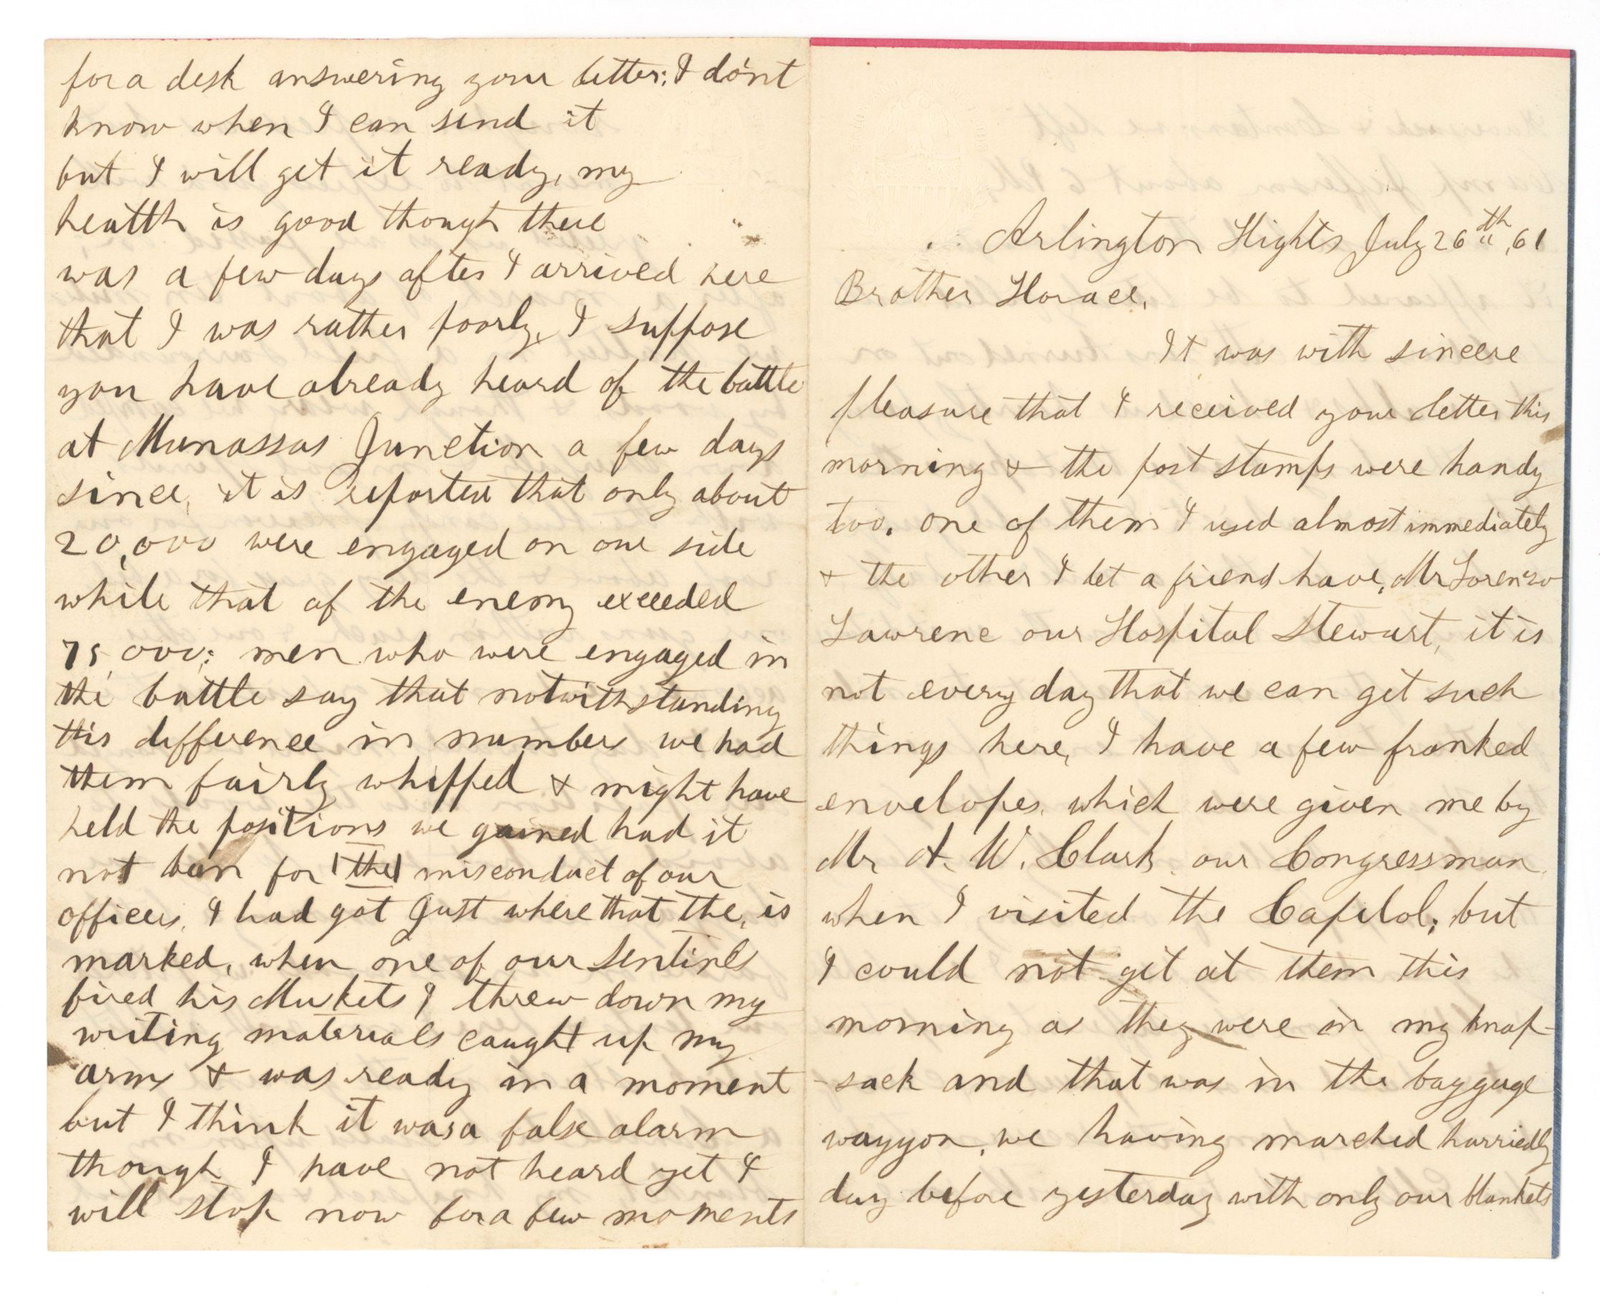 Arlington Hights, July 26th, 61
Brother Horace,
It was with sincere
pleasure that I received your letter this
morning & the post stamps were handy
too, one of them I used almost immediately
& the other I let a friend have, Mr Lorenzo
Lawrene our Hospital Stewart, it is
not every day that we can get such
things here, I have a few franked
envelopes, which were given me by
Mr A. W. Clark our Congressman
when I visited the Capitol; but
I could not git at them this
morning as they were in my knap-
-sack and that was in the baggage
waggon, we having marched hurriedly
day before yesterday with only our blankets
for a desk answering your letter; I don't
know when I can send it
but I will get it ready, my
health is good though there
was a few days after I arrived here
that I was rather poorly, I suppose
you have already heard of the battle
at Munassas Junction a few days
since, it is reported that only about
20,000 were engaged on our side
while that of the enemy exceeded
75,000; men who were engaged in
the battle say that notwithstanding
this difference in numbers we had
them fairly whipped & might have
held the positions we gained had it
not been for |the| misconduct of our
officers, I had got just where that the, is
marked, when one of our Sentinels
fired his Muskets I threw down my
writing materials caught up my
arms & was ready in a moment
but I think it was a false alarm
though I have not heard yet I
will stop now for a few moments